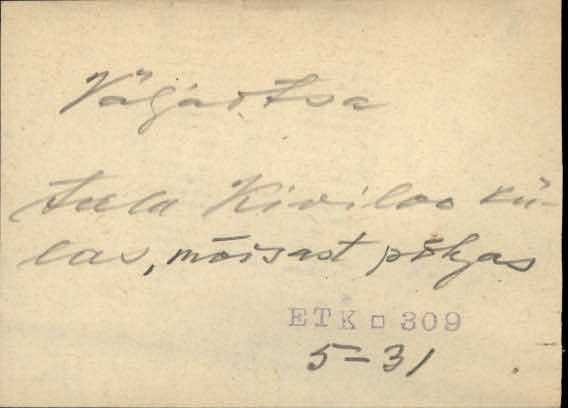 Väljaotsa
talu Kiviloo kü-
las, mõisast põhjas
ETK □ 309
5-31